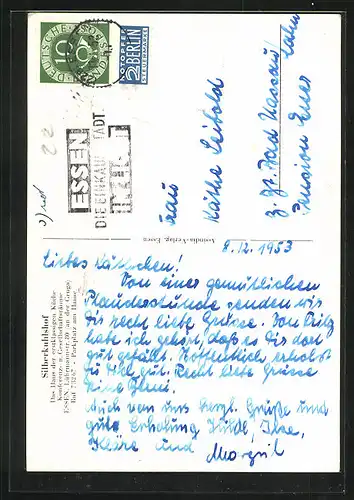 DEUTSCHE BUNDESPOST
10
NOTOPFER
2 BERLIN
STEUERMARKE
ESSEN
DIE EINKAUFSSTADT
Frau
Käthe Seibold
z. Zt. Bad Nassau Lahn
Pension
Silberkuhlshof
Das Haus der erstklassigen Küche
Konferenz- u. Gesellschaftsräume
ESSEN, Lührmannstr. 80 an der Gruga
Ruf 73267 - Parkplatz am Hause
Verlag, Essen
8.12.1953
Liebes Käthchen!
Von einer gemütlichen
Plauderstunde senden wir
Dir recht liebe Grüsse. Von
habe ich gehört, daß es Dir dort
gut gefällt. Hoffentlich erholst
Du Dich gut. Recht liebe Grüsse
Deine
Auch von uns herzl. Grüße und
gute Erholung Ilse,
Kläre und Margrit